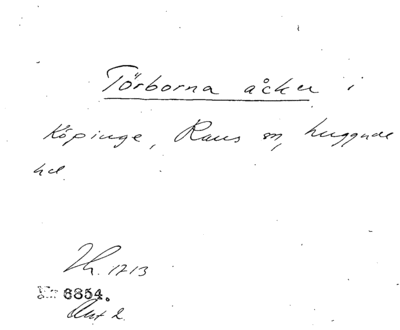 Törborna åker i
Köpinge, Raus sn, Luggude
hd
Lh. 1713
No 6854.
Akt 2